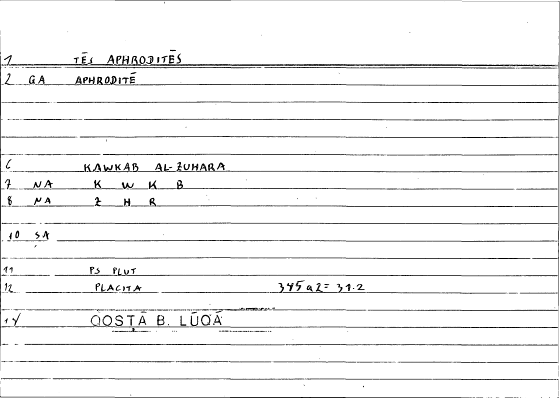 1 TĒS APHRODITĒS
2 GA APHRODITĒ
6 KAWKAB AL-ZUHARA
7 NA K W K B
8 NA Z H R
10 SA
11 PS PLUT
12 PLACITA 345a2= 31.2
14 QOSṬĀ B. LŪQĀ